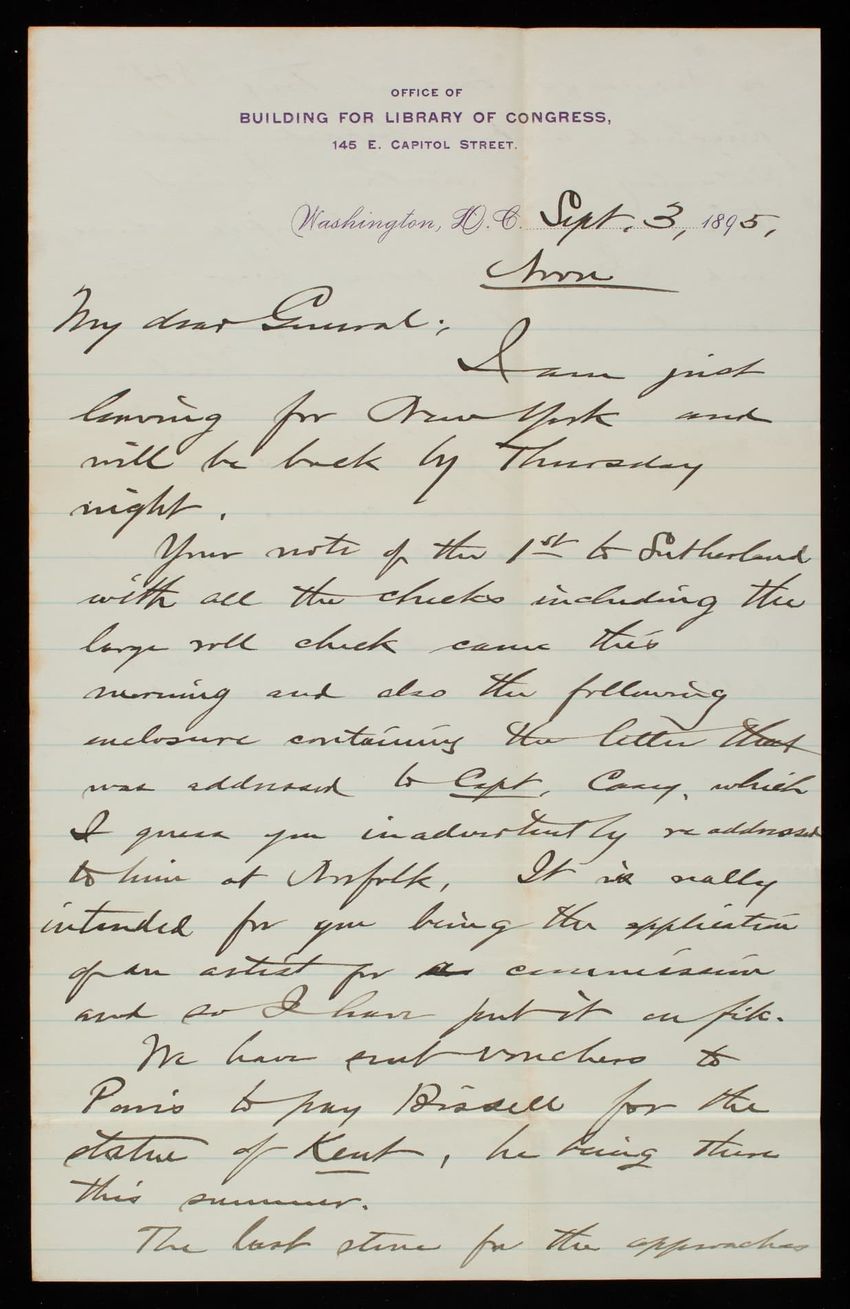 OFFICE OF
BUILDING FOR LIBRARY OF CONGRESS,
145 E. CAPITOL STREET.
Washington, D.C. Sept. 3, 1895,
Noon
My dear General:
I am just
leaving for New York and
will be back by Thursday
night.
Your note of the 1st to Sutherland
with all the checks including the
large roll check came this
morning and also the following
enclosure containing the letter that
was addressed to Capt. Casey, which
I guess you inadvertently readdressed
to him at Norfolk. It is really
intended for you being the application
of an artist for a commission
and so I have put it on file.
We have sent vouchers to
Paris to pay Bissell for the
statue of Kent, he being there
this summer.
The last stone for the approaches